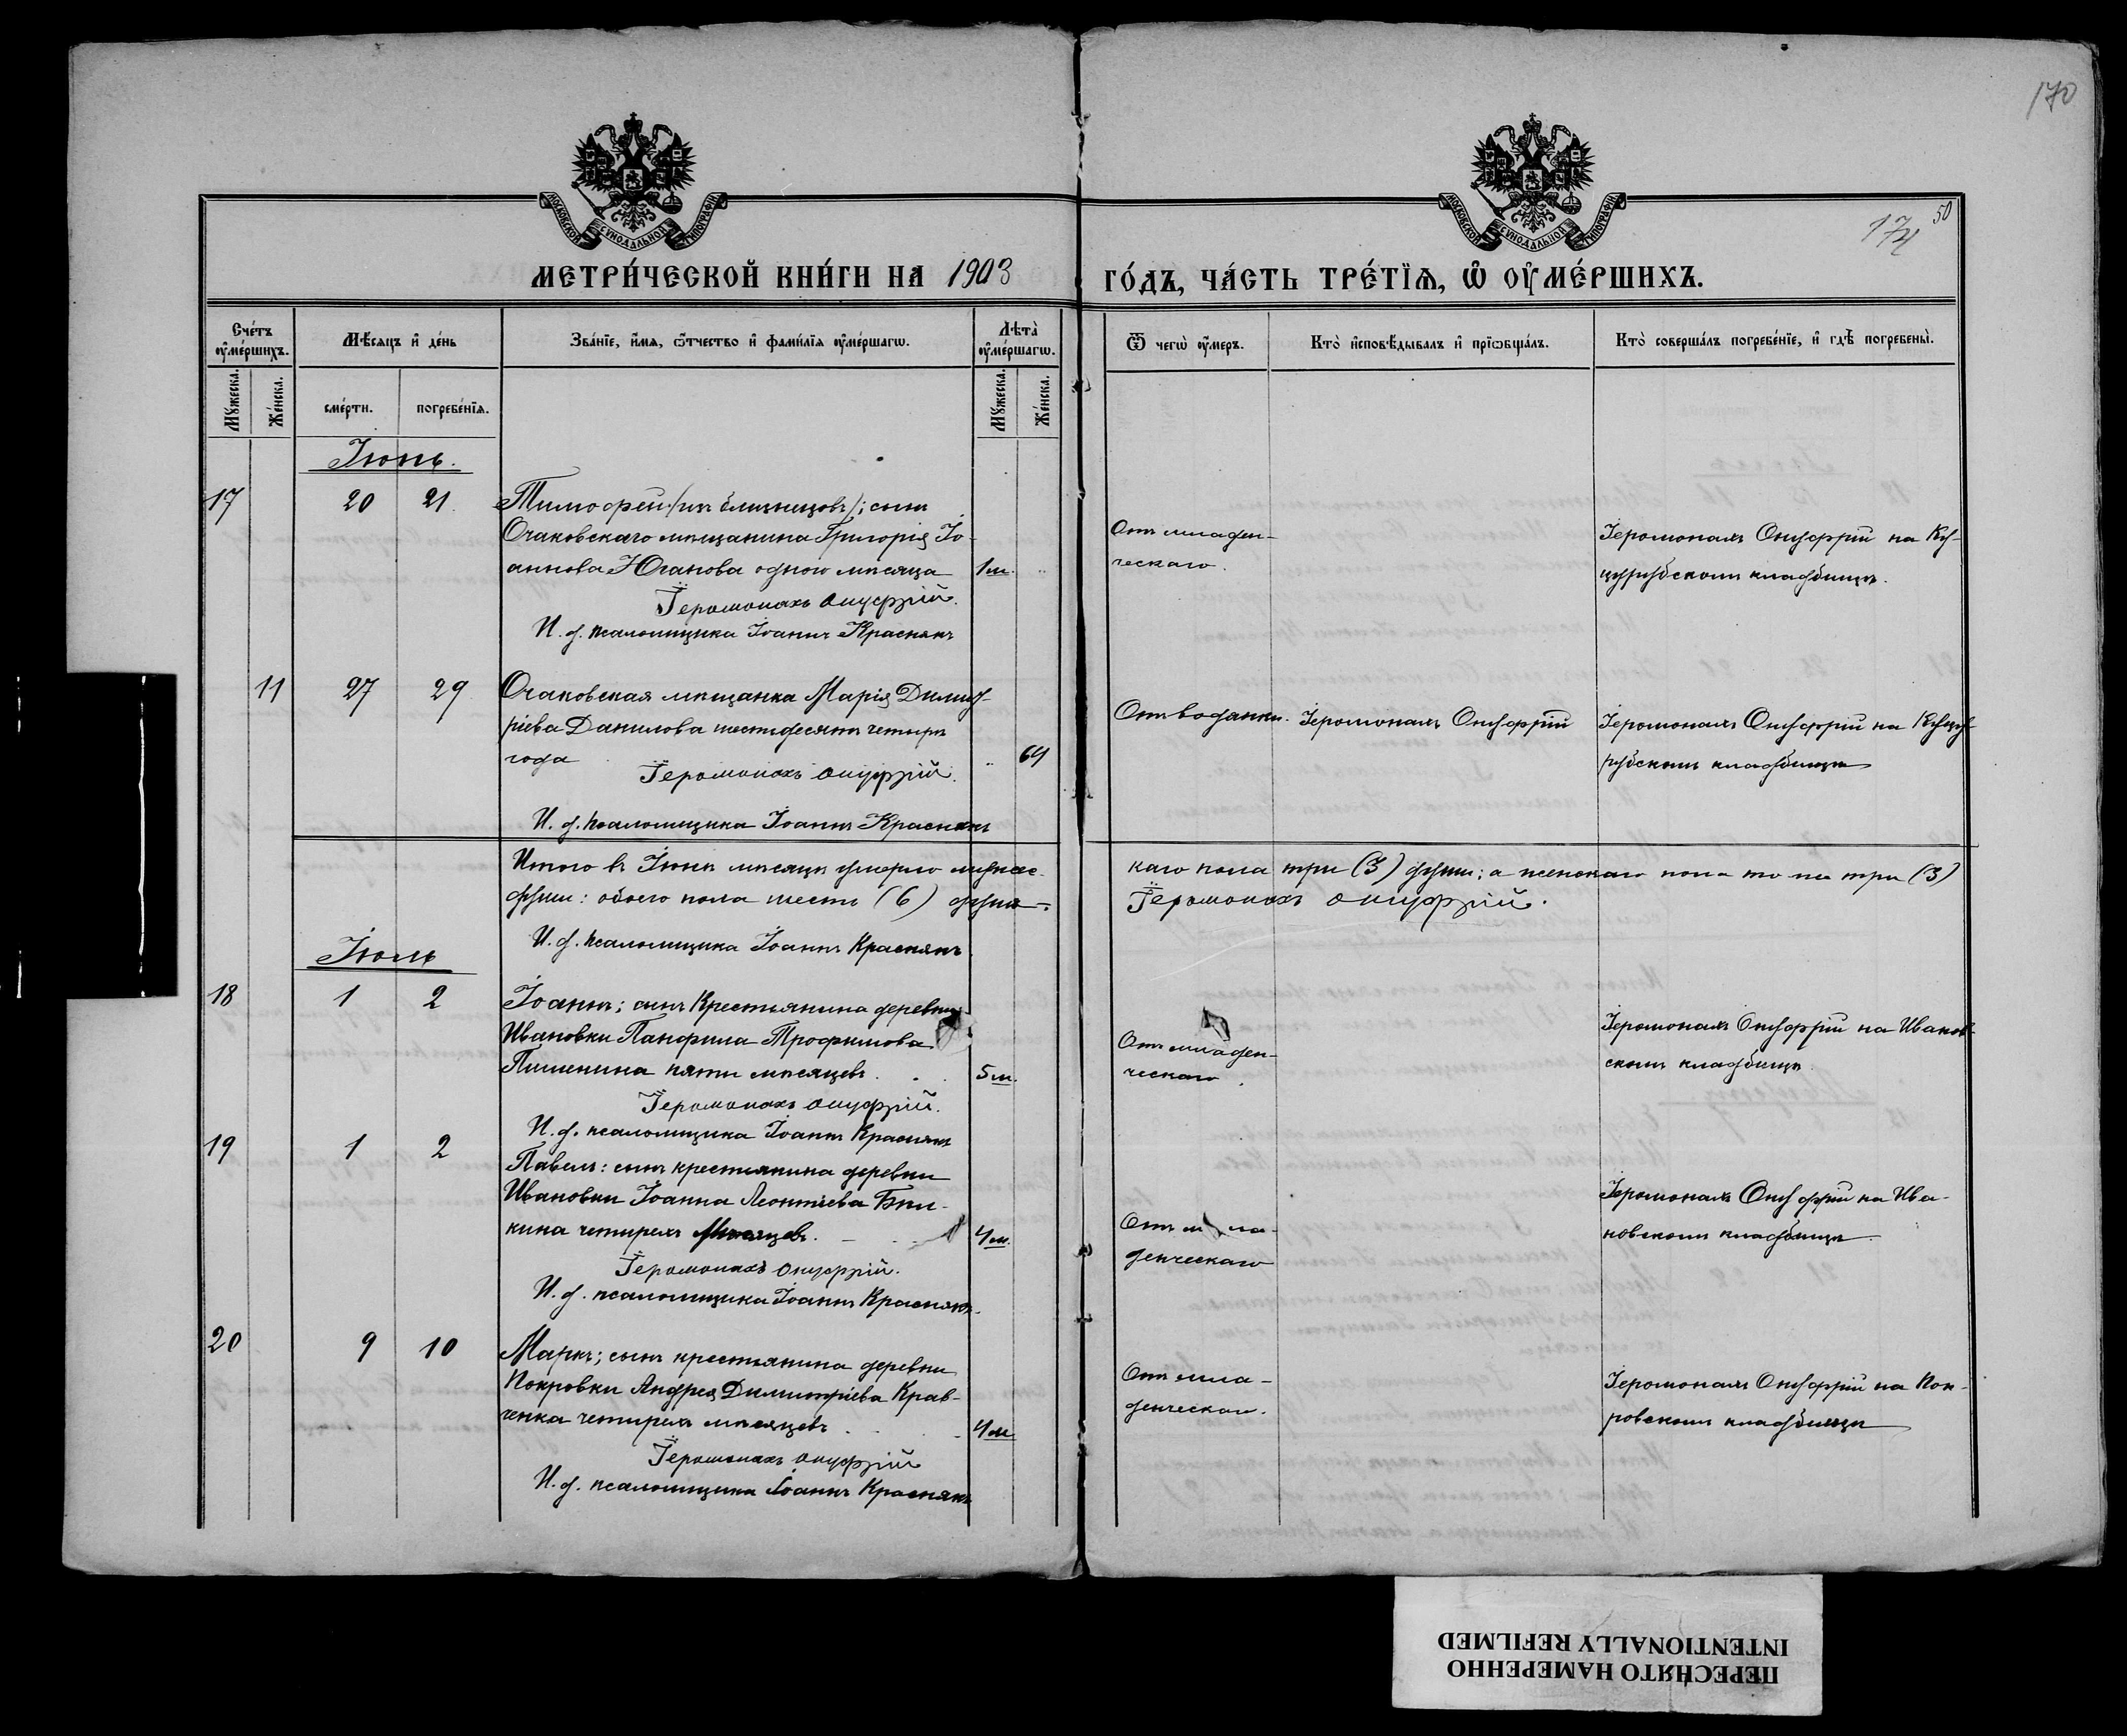 170
МОСКОВСКОЙ СѴНОДАЛЬНОЙ ТИПОГРАФІИ
МОСКОВСКОЙ СѴНОДАЛЬНОЙ ТИПОГРАФІИ
50
174
МЕТРИ́ЧЕСКОЙ КНИ́ГИ НА 1903 ГО́ДЪ, ЧА́СТЬ ТРЕ́ТЇѦ, Ѡ҆ ОУ҆МЕ́РШИХЪ.
Сче́тъ оу҆ме́ршихъ.
Мꙋжеска.
Же́нска.
Мѣ́сяцъ и҆ де́нь
сме́рти.
погребе́нїѧ.
Зва́нїе, и҆́мѧ, ѻ҆́тчество и҆ фами́лїѧ оу҆ме́ршагѡ.
Лѣта̀ оу҆ме́ршагѡ.
Мꙋжеска.
Же́нска.
Ѿ чегѡ̀ оу҆́меръ.
Кто̀ и҆сповѣ́дывалъ и҆ прїѡбща́лъ.
Кто̀ соверша́лъ погребе́нїе, и҆ гдѣ̀ погребены̀.
Іюнь.
17 20 21 Тимофей (изъ близнецовъ); сынъ
Очаковскаго мѣщанина Григорія Іо-
аннова Юганова одного мѣсяца 1 м.
Іеромонахъ Онуфрій.
И. д. псаломщика Іоаннъ Краснякъ
Отъ младен-
ческаго.
Іеромонахъ Онуфрій на Ку-
цурубскомъ кладбищѣ.
11 27 29 Очаковская мѣщанка Марія Димит-
ріева Данилова шестьдесятъ четыре
года 64
Іеромонахъ Онуфрій.
И. д. псаломщика Іоаннъ Краснякъ
Отъ водянки. Іеромонахъ Онуфрій
Іеромонахъ Онуфрій на Куцу-
рубскомъ кладбищѣ
Итого въ Іюнѣ мѣсяцѣ умерло мужес-
каго пола три (3) души; а женскаго пола то же три (3)
души: обоего пола шесть (6) душъ.
Іеромонахъ Онуфрій.
И. д. псаломщика Іоаннъ Краснякъ
Іюль
18 1 2 Іоаннъ; сынъ Крестьянина деревни
Ивановки Панфила Трофимова
Пименина пяти мѣсяцевъ. 5 м.
Іеромонахъ Онуфрій.
И. д. псаломщика Іоаннъ Краснякъ
Отъ младен-
ческаго.
Іеромонахъ Онуфрій на Иванов-
скомъ кладбищѣ
19 1 2 Павелъ: сынъ крестьянина деревни
Ивановки Іоанна Леонтіева
четырехъ мѣсяцевъ. 4 м.
Іеромонахъ Онуфрій.
И. д. псаломщика Іоаннъ Краснякъ.
Отъ мла-
денческаго
Іеромонахъ Онуфрій на Ива-
новскомъ кладбищѣ.
20 9 10 Маркъ; сынъ крестьянина деревни
Покровки Андрея Димитріева Крав-
ченка четырехъ мѣсяцевъ. 4 м
Іеромонахъ Онуфрій
И. д. псаломщика Іоаннъ Краснякъ
Отъ мла-
денческаго.
Іеромонахъ Онуфрій на Пок-
ровскомъ кладбищѣ
ПЕРЕСНЯТО НАМЕРЕННО
INTENTIONALLY REFILMED